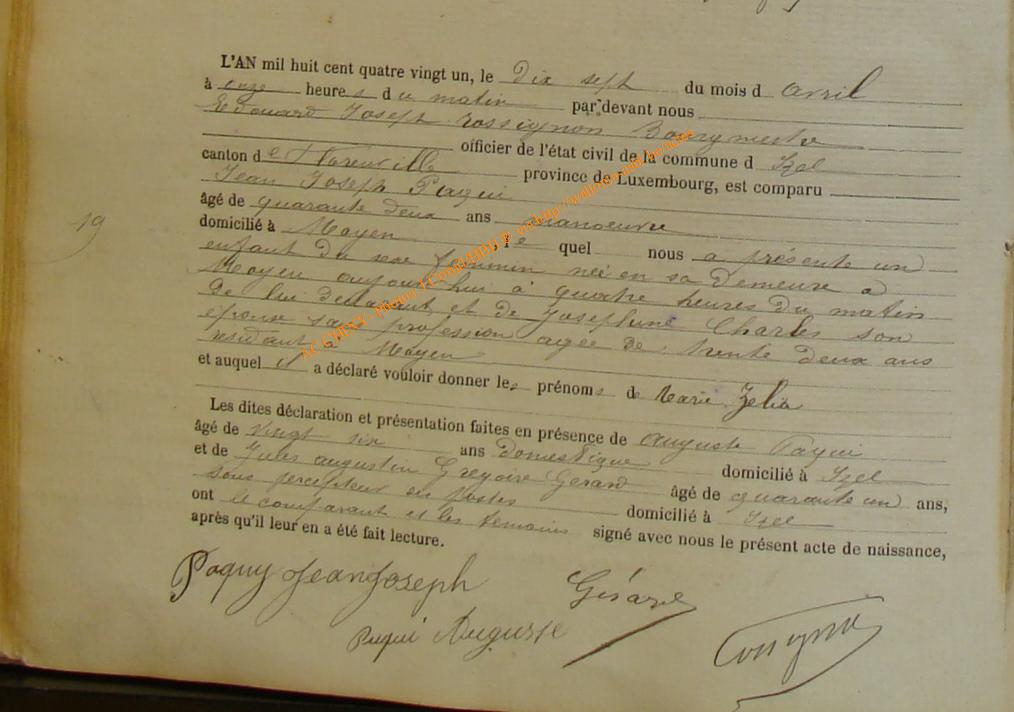 L'AN mil huit cent quatre vingt un, le Dix sept du mois d avril
à onze heures du matin par devant nous
Edouard Joseph Rossignon Bourgmestre
officier de l'état civil de la commune d Izel
canton de Florenville province de Luxembourg, est comparu
Jean Joseph Paqui
âgé de quarante deux ans manoeuvre
domicilié à Moyen lequel nous a présenté un
enfant du sexe féminin née en sa demeure a
Moyen aujourd'hui à quatre heures du matin
De lui déclarant et de Josephine Charles son
épouse sa profession agée de trente deux ans
résidant à Moyen
19
et auquel il a déclaré vouloir donner les prénoms de Marie Zelia
Les dites déclaration et présentation faites en présence de Auguste Paqui
âgé de vingt six ans Domestique domicilié à Izel
et de Jules augustin Gregoire Gerard âgé de quarante un ans,
sous percepteur des postes domicilié à Izel
ont le comparant et les temoins signé avec nous le présent acte de naissance,
après qu'il leur en a été fait lecture.
Paquy Jean Joseph Gérard
Paqui Auguste
Rossignon